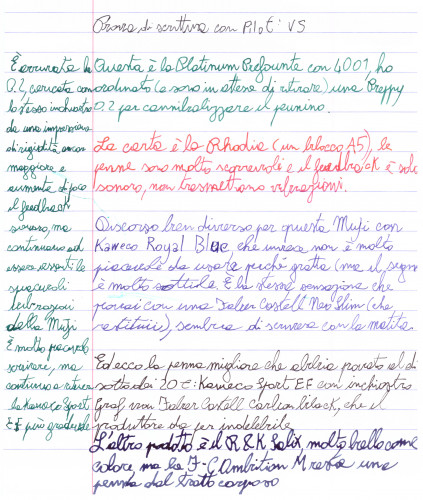 Prova di scrittura con Pilot VS
Questa è la Platinum Prefounte con 4001, ho
ordinato (e sono in attesa di ritirare) una Preppy
0.2 per cannibalizzare il pennino.
La carta è la Rhodia (un blocco A5), le
penne sono molto scorrevoli e il feedback è solo
sonoro, non trasmettono vibrazioni.
Discorso ben diverso per questa Muji con
Kaweco Royal Blue che invece non è molto
piacevole da usare perché gratta (ma il segno
è molto sottile. È la stessa sensazione che
provai con una Faber Castell Neo Slim (che
restituii), sembra di scrivere con la matita.
Ed ecco la penna migliore che abbia provato al di
sotto dei 20€: Kaweco Sport EF con inchiostro
Graf von Faber Castell Carbon black, che il
produttore da per indelebile
L'altro prodotto è il R&K Salix, molto bello come
colore, ma la F-C Ambition M resta una
penna dal tratto corposo
È arrivata la
0.2, caricata con
lo stesso inchiostro
da una impressione
di rigidità ancor
maggiore e
aumenta di poco
il feedback
sonoro, ma
continuano ad
essere assenti le
spiacevoli
vibrazioni
della Muji
È molto piacevole
scrivere, ma
continuo a ritenere
la Kaweco Sport
EF più gradevole